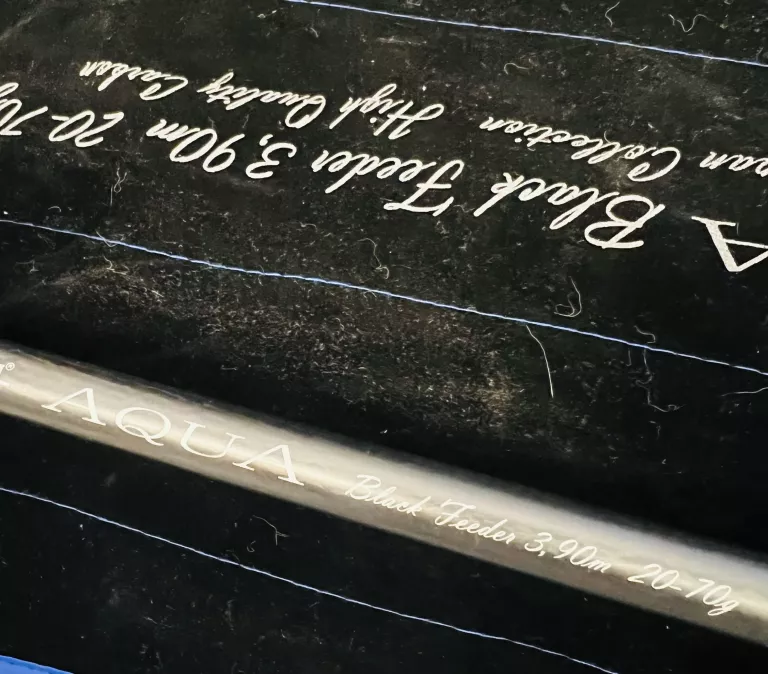 A
Black Feeder 3,90m 20-70g
Collection High Quality Carbon
AQUA Black Feeder 3,90m 20-70g